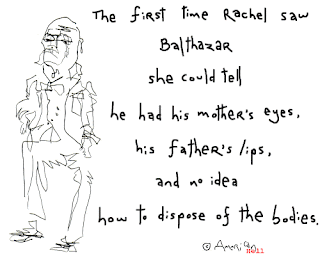 The first time Rachel saw
Balthazar
she could tell
he had his mother's eyes,
his father's lips,
and no idea
how to dispose of the bodies.